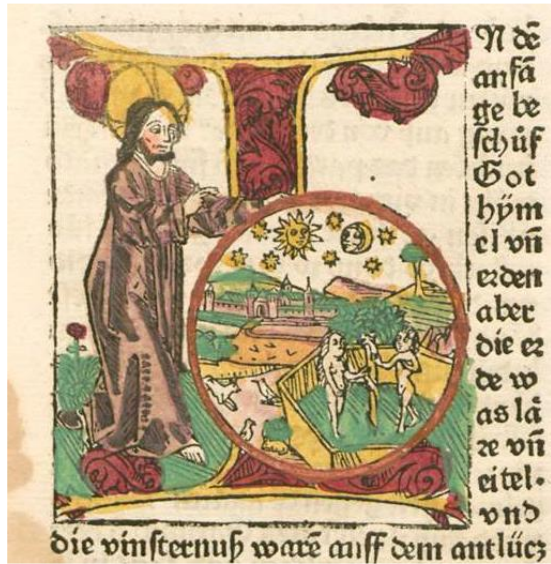 N dē
anfā
ge be
schůf
Got
hÿm
el vn̄
erden
aber
die er
de w
as lā
re vn̄
eitel.
vnd
die vinsternuß warē auff dem antlücz